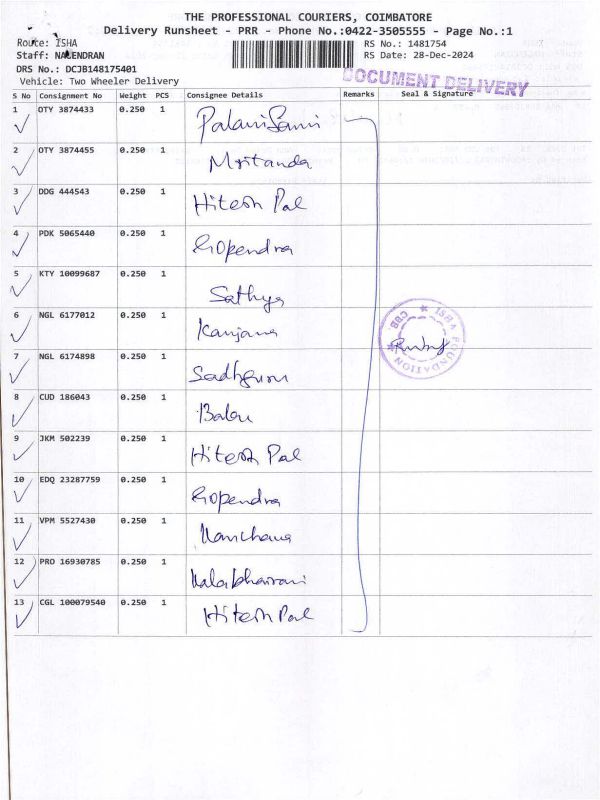 THE PROFESSIONAL COURIERS, COIMBATORE
Delivery Runsheet - PRR - Phone No.:0422-3505555 - Page No.:1
Route: ISHA RS No.: 1481754
Staff: NAGENDRAN RS Date: 28-Dec-2024
DRS No.: DCJB148175401
Vehicle: Two Wheeler Delivery
DOCUMENT DELIVERY
S No Consignment No Weight PCS Consignee Details Remarks Seal & Signature
1 OTY 3874433 0.250 1 PalaniSami
2 OTY 3874455 0.250 1 Mritanda
3 DDG 444543 0.250 1 Hitesh Pal
4 PDK 5065440 0.250 1 Gopendra
5 KTY 10099687 0.250 1 Sathya
6 NGL 6177012 0.250 1 Kanjana
7 NGL 6174898 0.250 1 Sadhguru
8 CUD 186043 0.250 1 Balu
9 JKM 502239 0.250 1 Hitesh Pal
10 EDQ 23287759 0.250 1 Gopendra
11 VPM 5527430 0.250 1 Kanchana
12 PRO 16930785 0.250 1 Kalabhairavi
13 CGL 100079540 0.250 1 Hitesh Pal
ISHA FOUNDATION CBB